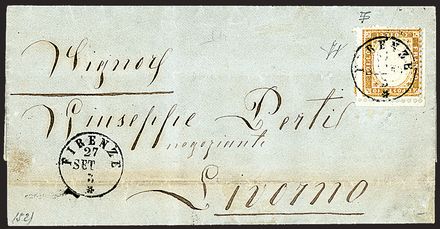 Signor
FIRENZE
Giuseppe Perti
negoziante
FIRENZE
27
SET
3
Livorno